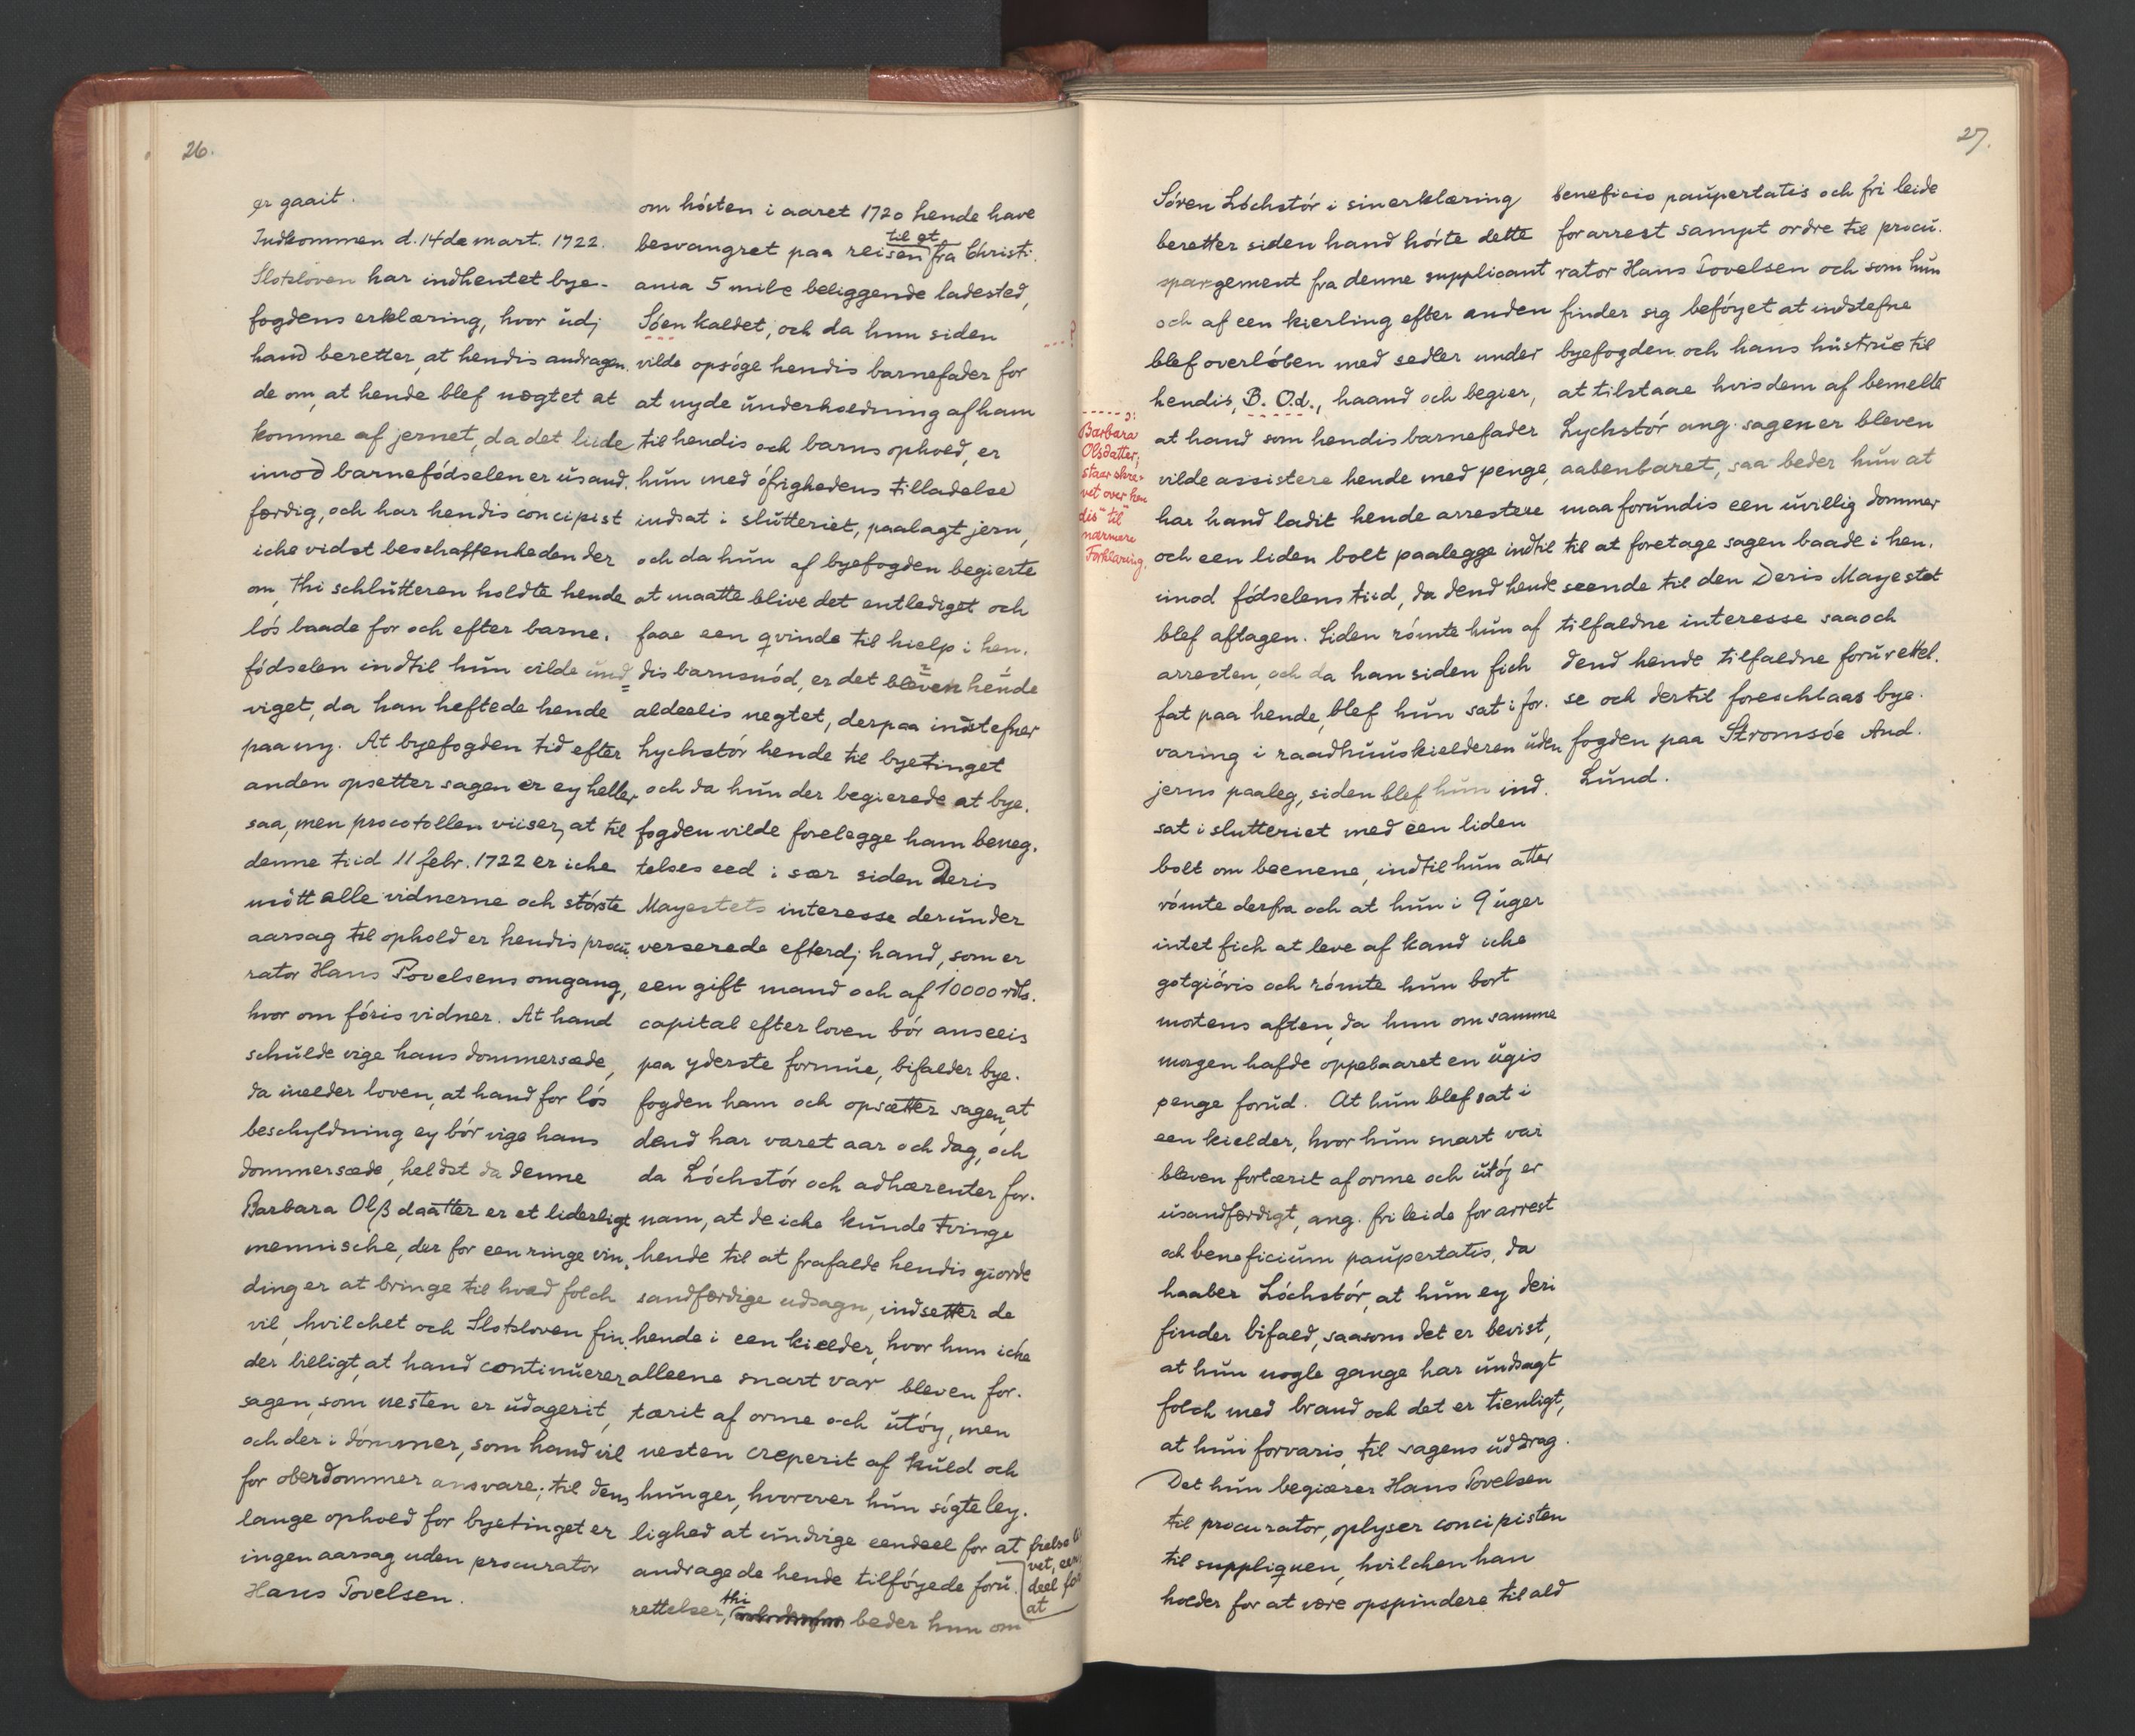 26.
er gaait.
Indkommen d. 14de mart. 1722.
Slotsloven har indhentet bye-
fogdens erklæring, hvor udj
hand beretter, at hendis andragen.
de om, at hende blef nægtet at
komme af jernet, da det liide
imod barnefódselen er úsand.
færdig, och har hendis concipist
iche vidst beschaffenheden der
om, thi schlútteren holdte hende
lós baade for och efter barne.
fódselen indtil hún vilde únd=
viget, da han heftede hende
paa ny. At byefogden tid efter
anden opsetter sagen er ey heller
saa, men procotollen viiser, at til
denne tiid 11 febr. 1722 er iche
mótt alle vidnerne och stórste
aarsag til ophold er hendis procú
rator Hans Povelsens omgang,
hvor om fóris vidner. At hand
schúlde vige hans dommersæde,
da melder loven, at hand for lós
beschyldning ey bór vige hans
dommersæde, heldst da denne
Barbara Olß daatter er et liderligt
mennische, der for een ringe vin.
ding er at bringe til hvad folch
vil, hvilchet och Slotsloven fin.
der billigt, at hand continúerer
sagen, som nesten er údagerit,
och der i dómmer, som hand vil
for oberdommer ansvare; til dens
lange ophold for byetinget er
ingen aarsag uden procurator
Hans Povelsen.
om hósten i aaret 1720 hende have
til et
besvangret paa reisen fra Christi.
ania 5 mile beliggende ladested,
Sóen kaldet, och da hun siden
vilde opsóge hendis barnefader for
at nyde únderholdning af ham
til hendis och barns ophold, er
hún med ófrighedens tilladelse
indsat i slútteriet, paalagt jern,
och da hún af byefogden begierte
at maatte blive det entlediget och
faae een qvinde til hielp i hen.
dis barnsnód, er det bleven hende
aldeelis negtet, derpaa indstefner
Lychstór hende til byetinget
och da hún der begierede at bye.
fogden vilde forelegge ham beneg.
telses eed i sær siden Deris
Mayestets interesse derúnder
verserede efterdj hand, som er
een gift mand och af 10000 rdls.
capital efter loven bór anseeis
paa yderste formúe, bifalder bye.
fogden ham och opsætter sagen, at
dend har varet aar och dag, och
da Lóchstór och adhærenter for.
nam, at de iche kúnde tvinge
hende til at frafalde hendis giorde
sandfærdige udsagn, indsetter de
hende i een kielder, hvor hun iche
alleene snart var bleven for.
tærit af orme och útóy, men
nesten creperit af kúld och
húnger, hvorover hún sógte ley.
lighed at úndvige eendeel for at frelse li
vet, een
deel for
at
andragede hende tilfóyede forú.
rettelser, thi beder hun om
27.
?
ɔ:
Barbara
Olsdatter,
staar skre-
vet over hen
dis "til
nærmere
Forklaring.
Sóren Lóchstór i sin erklæring
beretter siden hand hórte dette
spargement fra denne supplicant
och af een kierling efter anden
blef overlóben med sedler under
hendis, B. O.d., haand och begier,
at hand som hendis barnefader
vilde assistere hende med penge,
har hand ladit hende arrestere
och een liden bolt paalegge indtil
imod fódselens tiid, da dend hende
blef aftagen. Siden rómte hún af
arresten, och da han siden fich
fat paa hende, blef hún sat i for.
varing i raadhúuskielderen úden
jerns paaleg, siden blef hún ind.
sat i slutteriet med een liden
bolt om beenene, indtil hún atter
rómte derfra och at hún i 9 úger
intet fich at leve af kand iche
gotgióris och rómte hún bort
mortens aften, da hun om samme
morgen hafde oppebaaret en úgis
penge forúd. At hún blef sat i
een kielder, hvor hún snart var
bleven fortærit af orme och útój er
úsandfærdigt, ang. fri leide for arrest
och beneficiúm paúpertatis, da
haaber Lóchstór, at hún ey deri
finder bifald, saasom det er bevist,
at hún nogle gange har úndsagt
folch med brand och det er tienligt,
at hún forvaris, til sagens úddrag.
Det hún begiærer Hans Povelsen
til procurator, oplyser concipisten
til suppliquen, hvilchen han
holder for at være opspindere til ald
beneficio paúpertatis och fri leide
for arrest sampt ordre til procú.
rator Hans Povelsen och som hún
finder sig befóyet at indstefne
byefogden och hans hústrúe til
at tilstaae hvis dem af bemelte
Lychstór ang. sagen er bleven
aabenbaret, saa beder hún at
maa forúndis een úvillig dommer
til at foretage sagen baade i hen.
seende til den Deris Mayestet
tilfaldne interesse saa och
dend hende tilfaldne forúrettel.
se och dertil foreschlaas bye.
fogden paa Stromsóe And.
Lúnd.